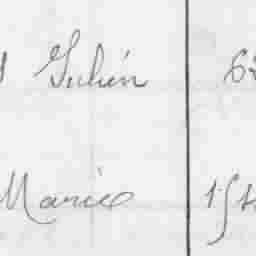 Julien 62
Marie